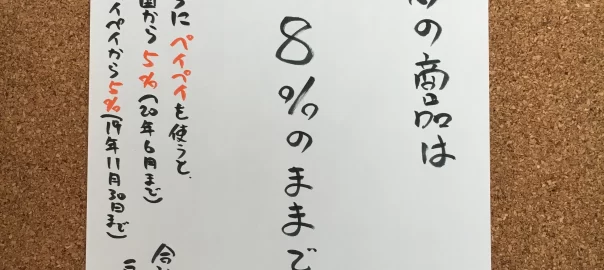 の商品は
8%のままで
うに ペイペイを使うと、
国から 5%(20年6月まで)
ペイペイから5%(19年11月30日まで)
合